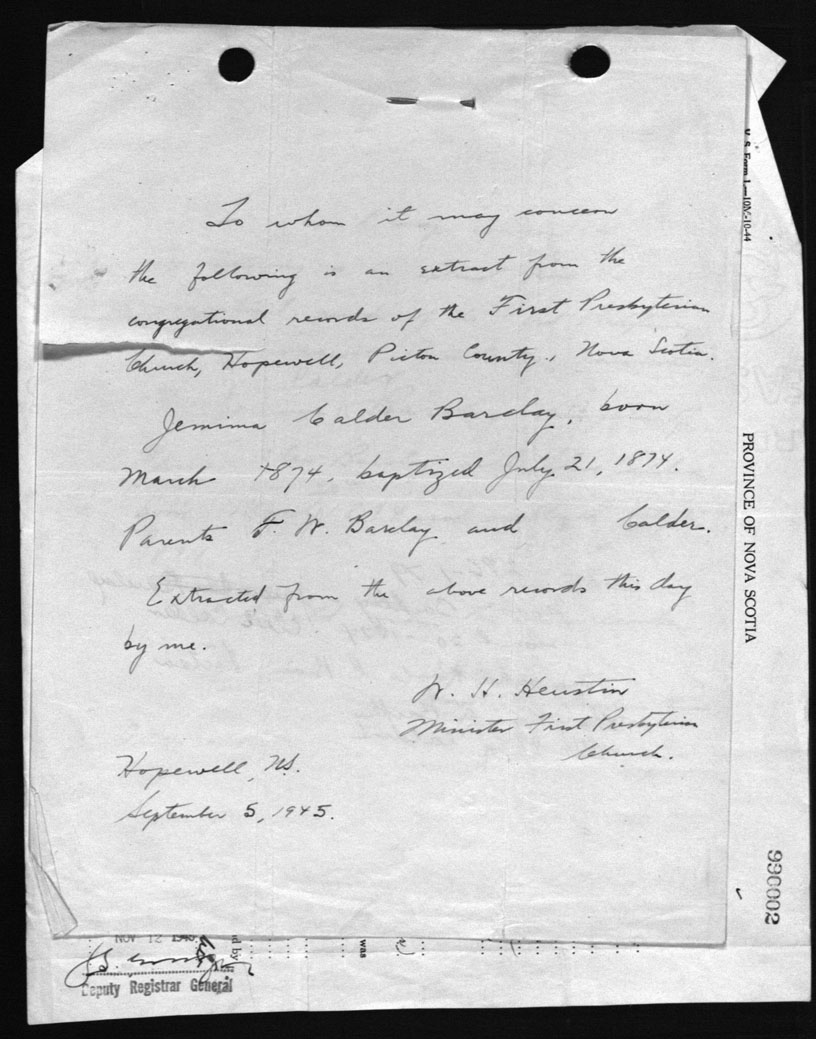 To whom it may concern
the following is an extract from the
congregational records of the First Presbyterian
Church, Hopewell, Pictou County, Nova Scotia.
Jemima Calder Barclay, born
March 1874, baptized July 21, 1874.
Parents F. W. Barclay and Calder.
Extracted from the above records this day
by me.
W. H. Heustin
Minister First Presbyterian
Church.
Hopewell, N.S.
September 5, 1945.
V. S. Form 1—10M-10-44
PROVINCE OF NOVA SCOTIA
990002
NOV 12 1945
was
Deputy Registrar General